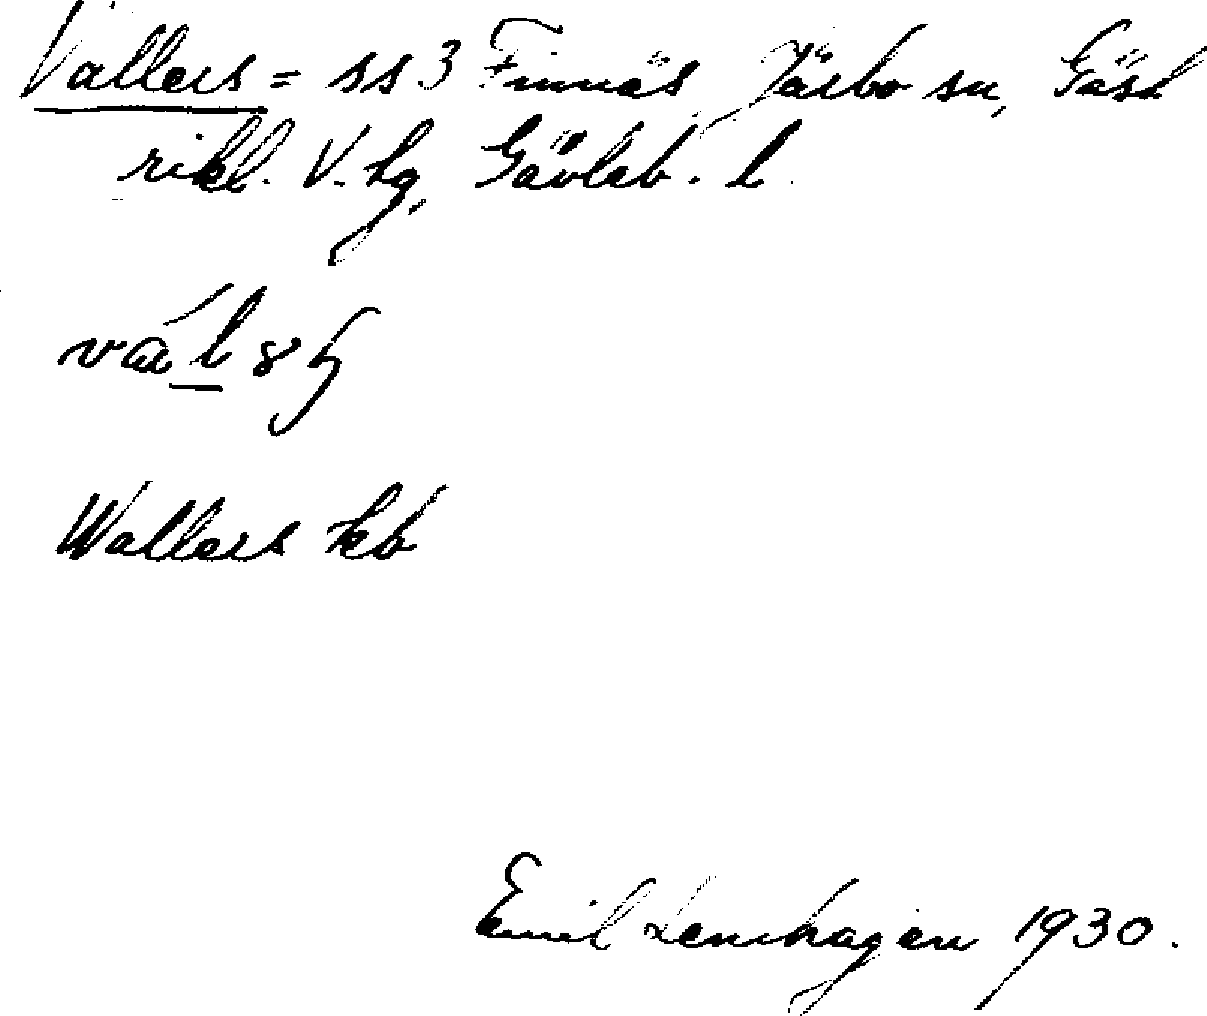 Vallers = ss 3 Finnäs Järbo sn, Gäst
rikl. V. hg, Gävleb. l.
Wallers kb
Emil Lenhagen 1930.